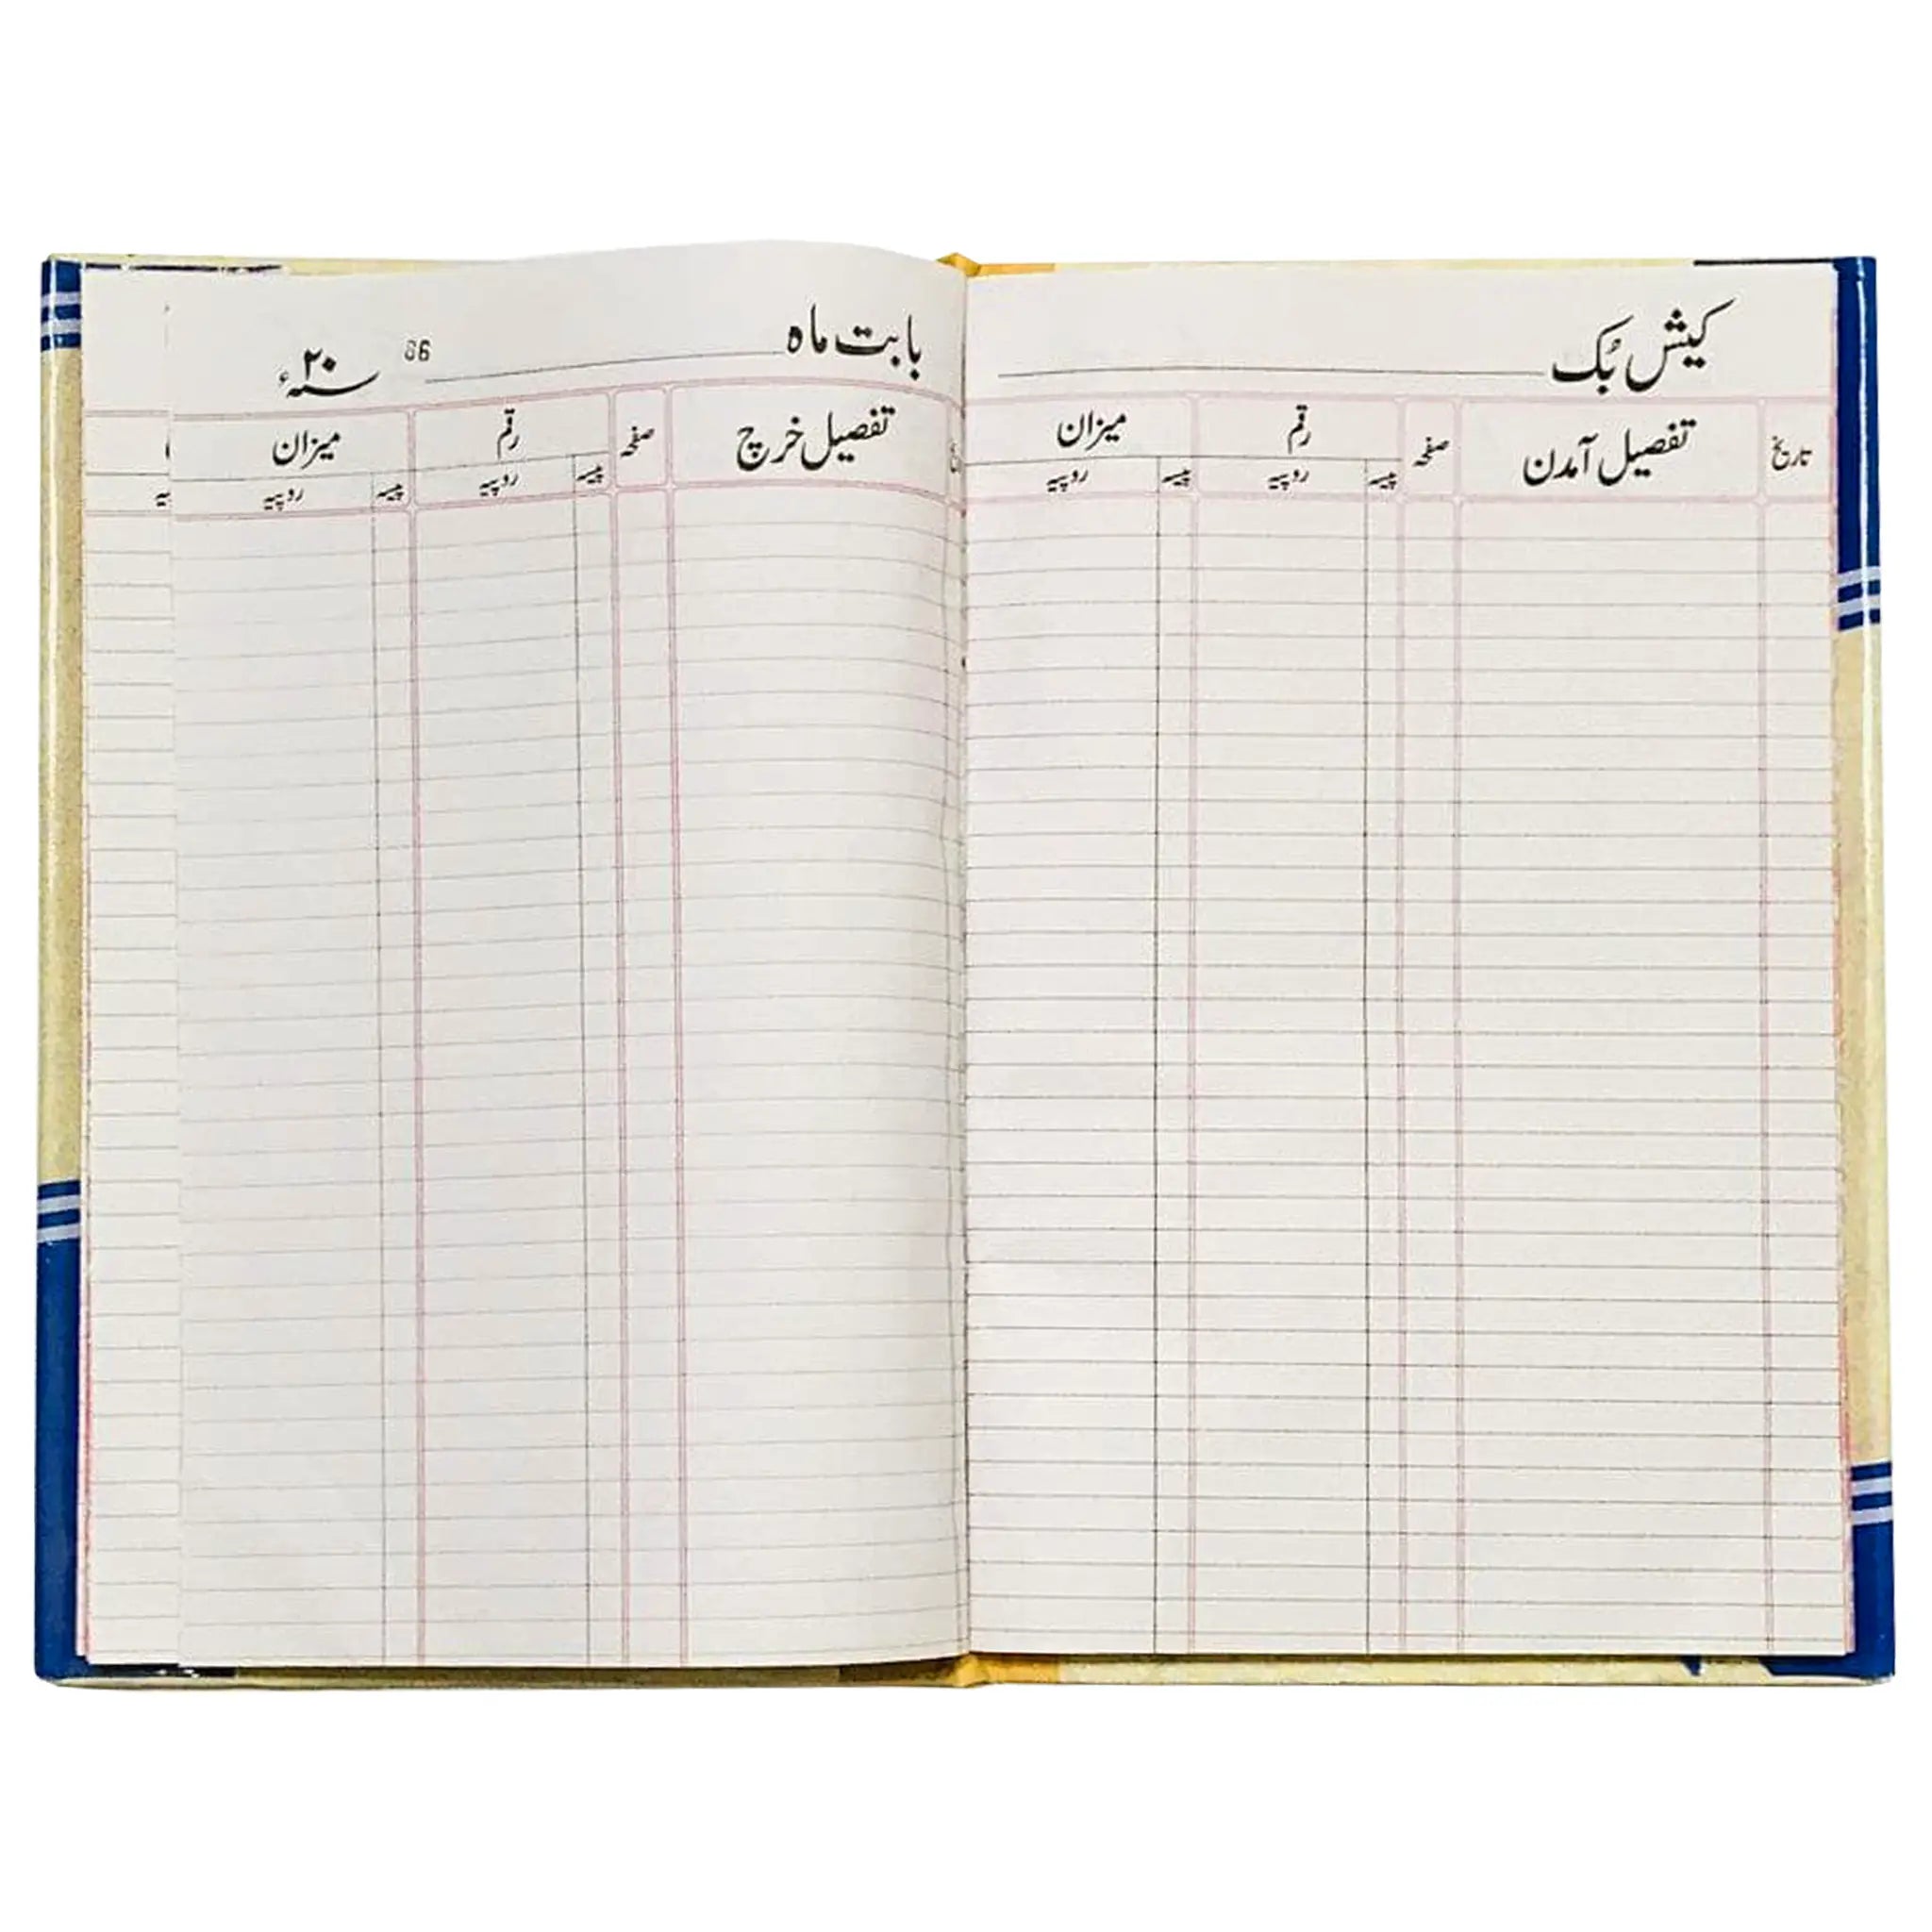 کیش بُک
تاریخ تفصیل آمدن صفحہ رقم میزان
پیسہ روپیہ پیسہ روپیہ
بابت ماہ 86 سنہ ۲۰ء
تفصیل خرچ صفحہ رقم میزان
پیسہ روپیہ پیسہ روپیہ